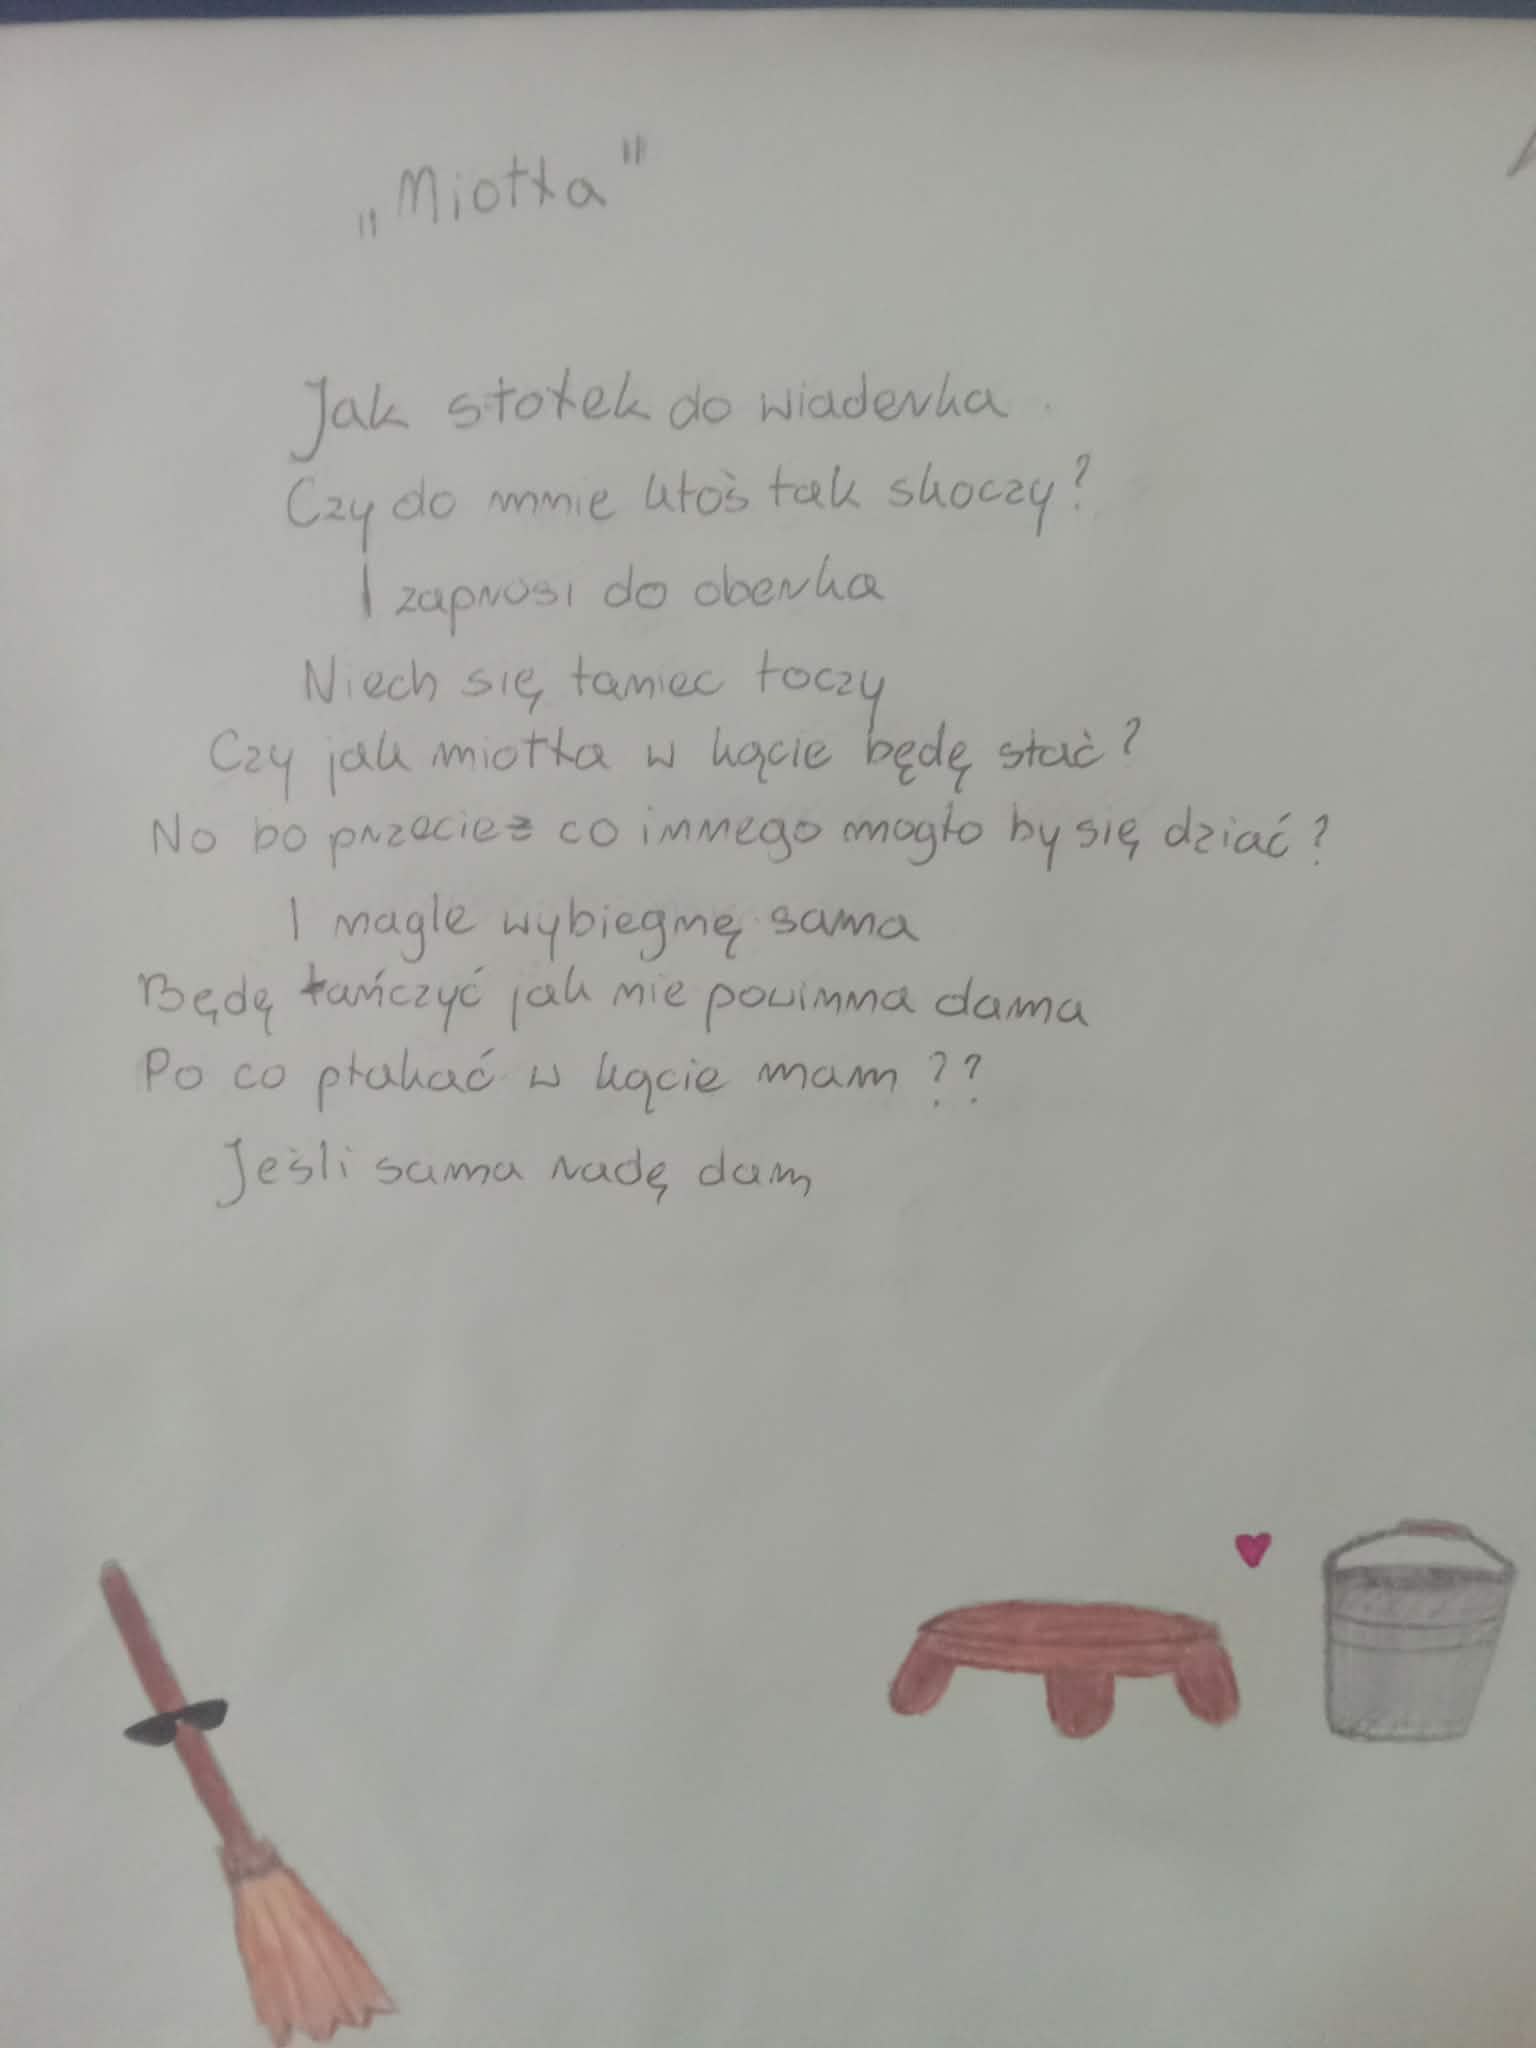 „Miotła"
Jak stołek do wiaderka
Czy do mnie ktoś tak skoczy?
I zaprosi do oberka
Niech się taniec toczy
Czy jak miotła w kącie będę stać?
No bo przecież co innego mogło by się dziać?
I nagle wybiegnę sama
Będę tańczyć jak nie powinna dama
Po co płakać w kącie mam??
Jeśli sama radę dam